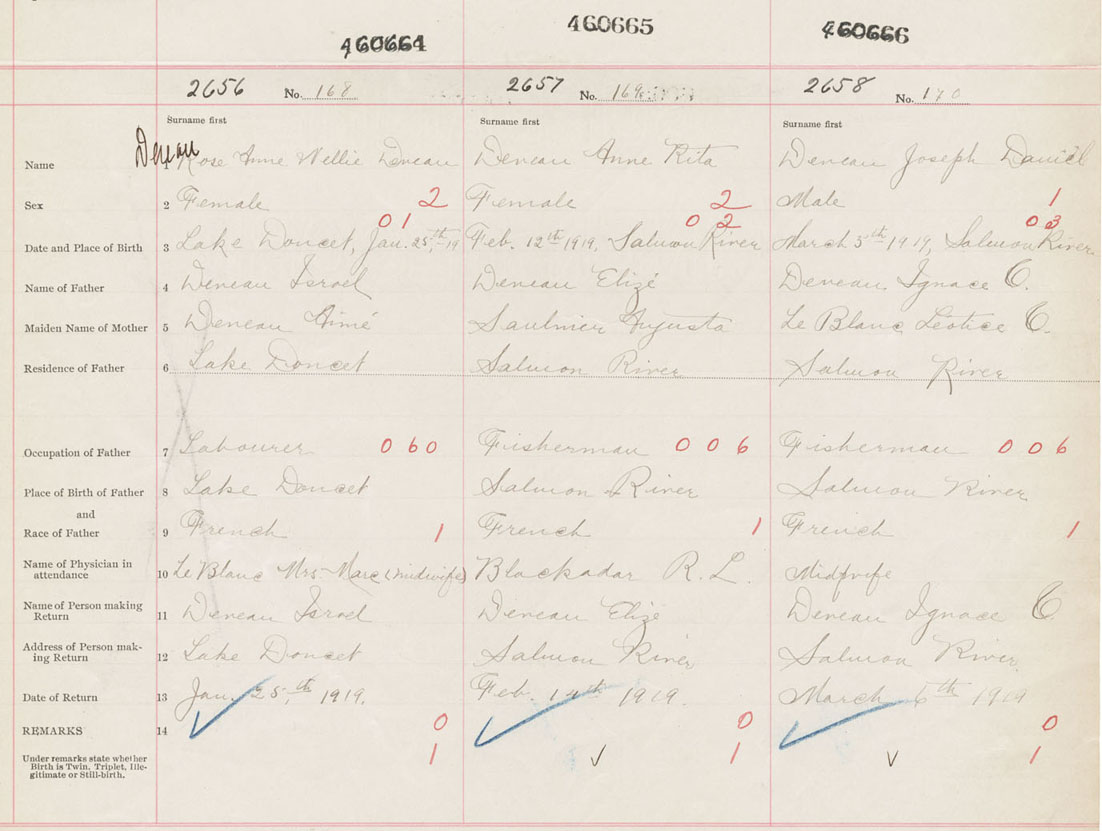 460664 460665 460666
2656 No. 168 2657 No. 169 2658 No. 170
Surname first Surname first Surname first
Deveau
Name 1 Rose Anne Nellie Deveau Deveau Anne Rita Deveau Joseph Daniel
Sex 2 Female 2 Female 2 Male 1
01 02 03
Date and Place of Birth 3 Lake Doucet, Jan. 25,th 19 Feb. 12th 1919, Salmon River March 5th 1919, Salmon River
Name of Father 4 Deveau Israel Deveau Elizé Deveau Ignace C.
Maiden Name of Mother 5 Deveau Aimé Saulnier Augusta Le Blanc Leotice C.
Residence of Father 6 Lake Doucet Salmon River Salmon River
Occupation of Father 7 Labourer 060 Fisherman 006 Fisherman 006
Place of Birth of Father 8 Lake Doucet Salmon River Salmon River
and
Race of Father 9 French 1 French 1 French 1
Name of Physician in
attendance 10 Le Blanc Mrs Marc (midwife) Blackadar R. L. Midwife
Name of Person making
Return 11 Deveau Israel Deveau Elizé Deveau Ignace C
Address of Person mak-
ing Return 12 Lake Doucet Salmon River Salmon River
Date of Return 13 Jan. 25,th 1919. Feb. 14th 1919. March 6th 1919
REMARKS 14 0 0 0
Under remarks state whether
Birth is Twin, Triplet, Ille-
gitimate or Still-birth. 1 1 1